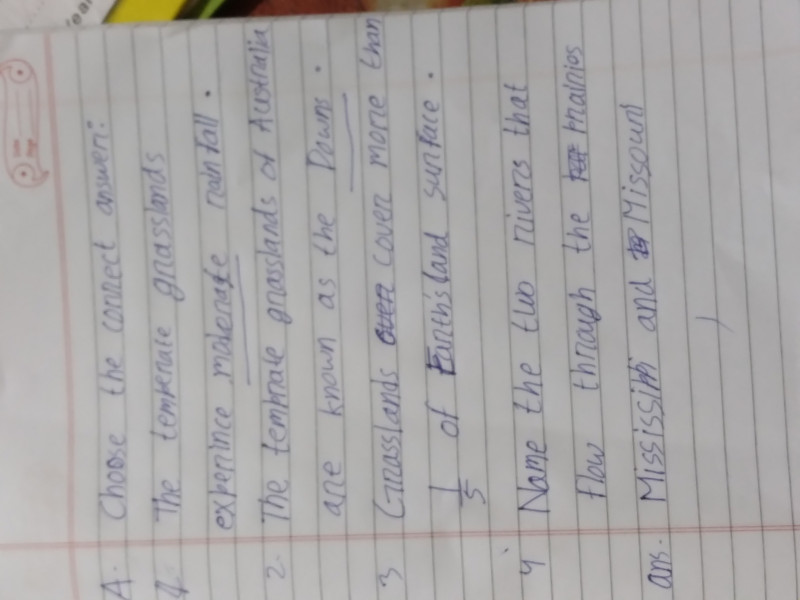 A. Choose the correct answer:
1. The temperate grasslands
experince moderate rainfall.
2. The temprate grasslands of Australia
are known as the Downs.
3 Grasslands cover more than
1/5 of Earth's land surface.
4 Name the two rivers that
flow through the prairios
ans. Mississippi and Missouri